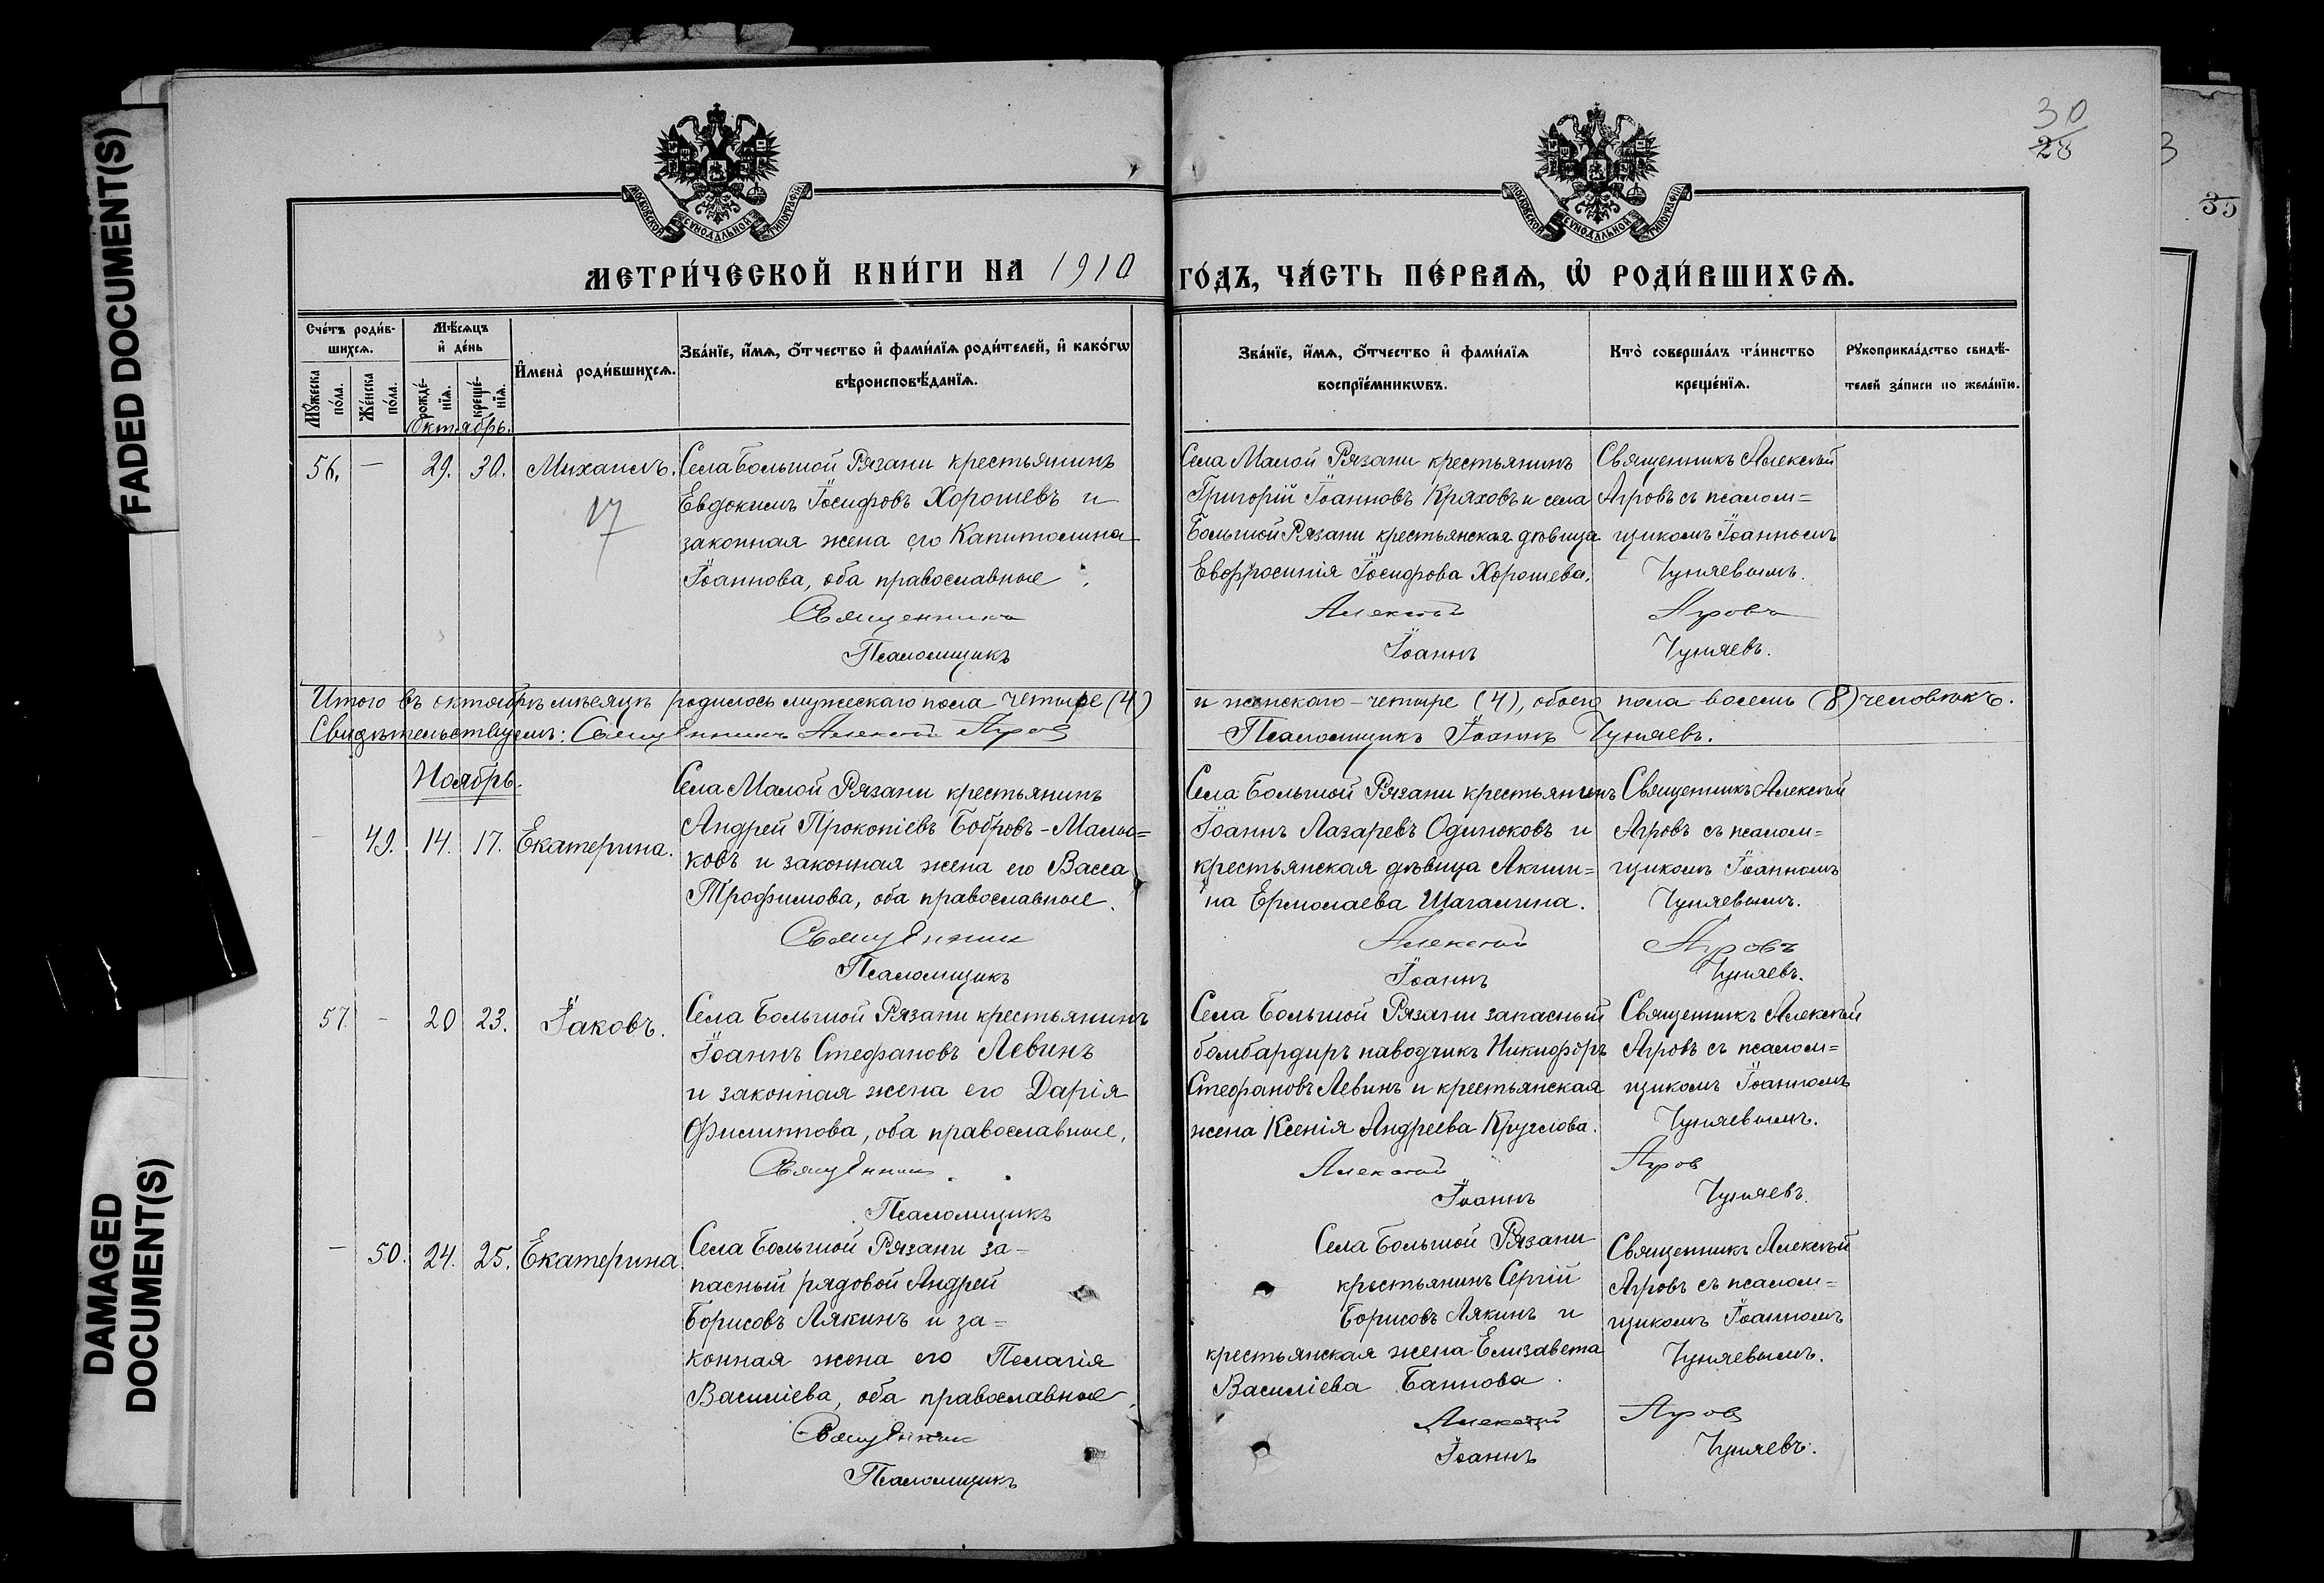 FADED DOCUMENT(S)
DAMAGED
DOCUMENT(S)
30
28
35
МОСКОВСКОЙ СѴНОДАЛЬНОЙ ТИПОГРАФІИ
МОСКОВСКОЙ СѴНОДАЛЬНОЙ ТИПОГРАФІИ
МЕТРИ́ЧЕСКОЙ КНИ́ГИ НА 1910 ГО́ДЪ, ЧА́СТЬ ПЕ́РВАѦ, Ѡ҆ РОДИ́ВШИХСѦ.
Сче́тъ роди́в-
шихсѧ.
Мꙋ́жеска по́ла.
Же́нска по́ла.
Мѣ́сѧцъ
и҆ де́нь
рожде́-
нїѧ.
креще́-
нїѧ.
И҆мена̀ роди́вшихсѧ.
Зва́нїе, и҆́мѧ, ѻ҆́тчество и҆ фами́лїѧ роди́телей, и҆ како́гѡ
вѣроисповѣ́данїѧ.
Зва́нїе, и҆́мѧ, ѻ҆́тчество и҆ фами́лїѧ
воспрїе́мникѡвъ.
Кто̀ соверша́лъ та́инство
креще́нїѧ.
Рꙋкоприкла́дство свидѣ́-
телей за́писи по жела́нїю.
Октябрь.
56. — 29. 30. Михаилъ.
17
Села Большой Рязани крестьянинъ
Евдокимъ Іосифовъ Хорошевъ и
законная жена его Капитолина
Іоаннова, оба православные.
Села Малой Рязани крестьянинъ
Григорій Іоанновъ Кряховъ и села
Большой Рязани крестьянская дѣвица
Евфросинія Іосифова Хорошева.
Священникъ Алексѣй
Агровъ съ псалом=
щикомъ Іоанномъ
Чуняевымъ.
Священникъ Алексѣй Агровъ
Псаломщикъ Іоаннъ Чуняевъ.
Итого въ октябрѣ мѣсяцѣ родилось мужескаго пола четыре (4) и женскаго – четыре (4), обоего пола восемь (8) человѣкъ.
Свидѣтельствуемъ: Священникъ Алексѣй Агровъ Псаломщикъ Іоаннъ Чуняевъ.
Ноябрь.
— 49. 14. 17. Екатерина.
Села Малой Рязани крестьянинъ
Андрей Прокопіевъ Бобровъ-Мало=
ковъ и законная жена его Васса
Трофимова, оба православные.
Села Большой Рязани крестьянинъ
Іоаннъ Лазаревъ Одиноковъ и
крестьянская дѣвица Акили=
на Ермолаева Шагалина.
Священникъ Алексѣй
Агровъ съ псалом=
щикомъ Іоанномъ
Чуняевымъ.
Священникъ Алексѣй Агровъ
Псаломщикъ Іоаннъ Чуняевъ.
57. — 20 23. Іаковъ.
Села Большой Рязани крестьянинъ
Іоаннъ Стефановъ Левинъ
и законная жена его Дарія
Филиппова, оба православные.
Села Большой Рязани запасный
бомбардиръ наводчикъ Никифоръ
Стефановъ Левинъ и крестьянская
жена Ксенія Андреева Круглова.
Священникъ Алексѣй
Агровъ съ псалом=
щикомъ Іоанномъ
Чуняевымъ.
Священникъ Алексѣй Агровъ
Псаломщикъ Іоаннъ Чуняевъ.
— 50. 24. 25. Екатерина
Села Большой Рязани за-
пасный рядовой Андрей
Борисовъ Лякинъ и за=
конная жена его Пелагія
Василіева, оба православные.
Села Большой Рязани
крестьянинъ Сергій
Борисовъ Лякинъ и
крестьянская жена Елизавета
Василіева Баннова.
Священникъ Алексѣй
Агровъ съ псалом=
щикомъ Іоанномъ
Чуняевымъ.
Священникъ Алексѣй Агровъ
Псаломщикъ Іоаннъ Чуняевъ.